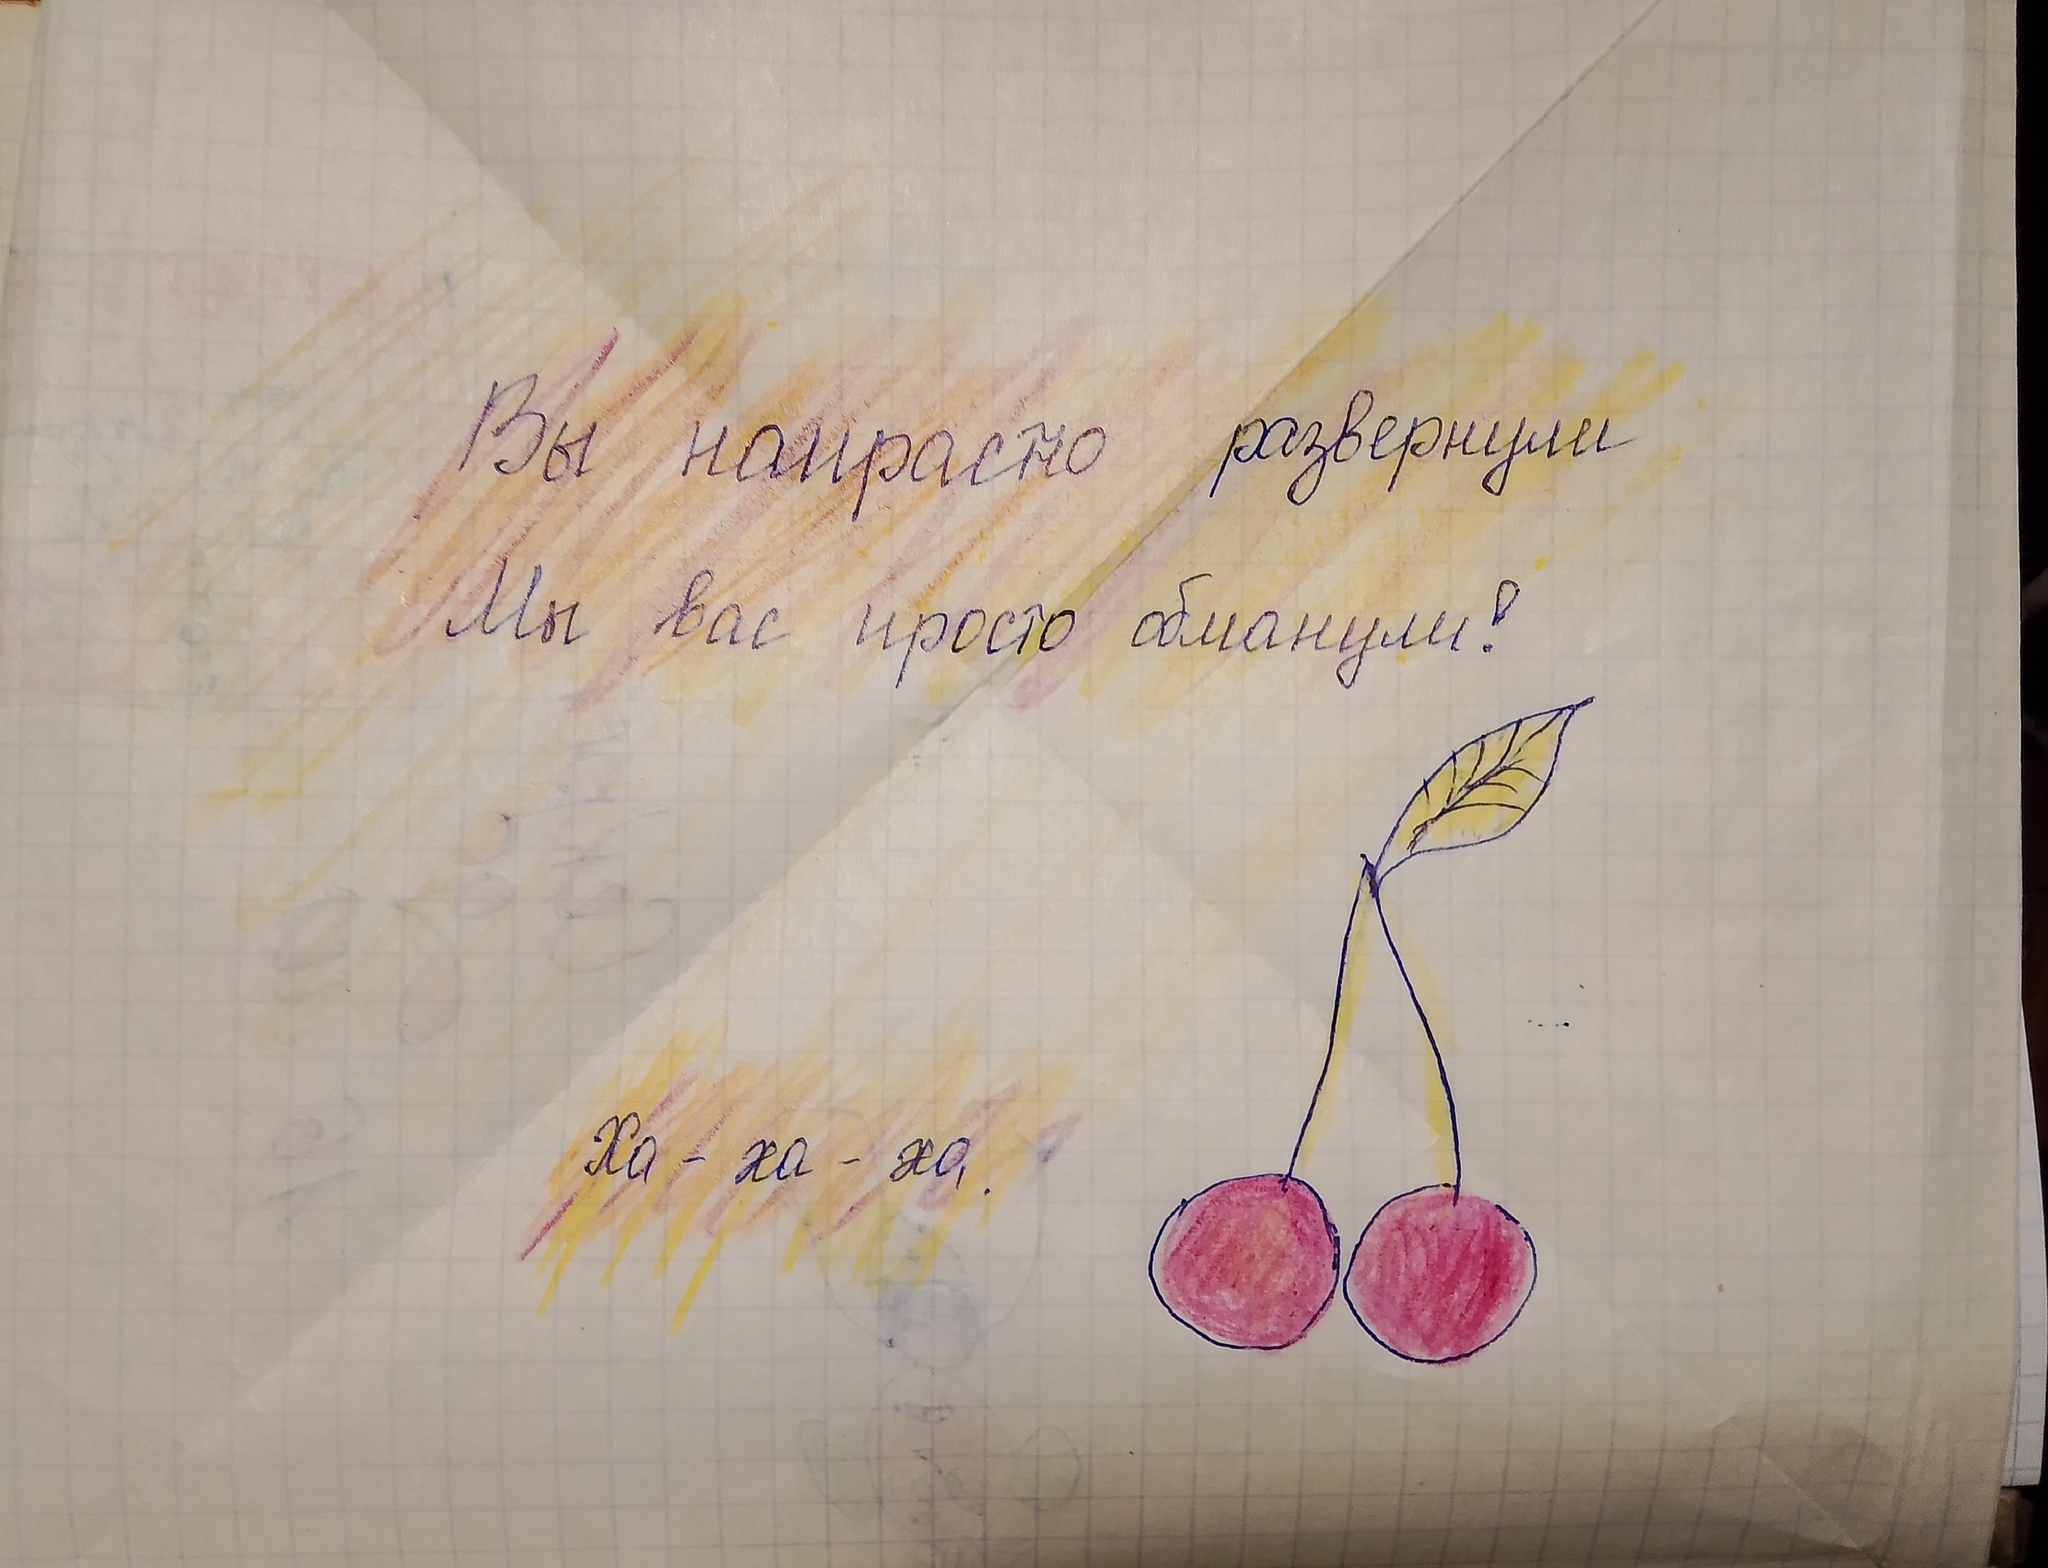 Вы напрастно развернули
Мы вас просто обманули!
Ха - ха - ха.